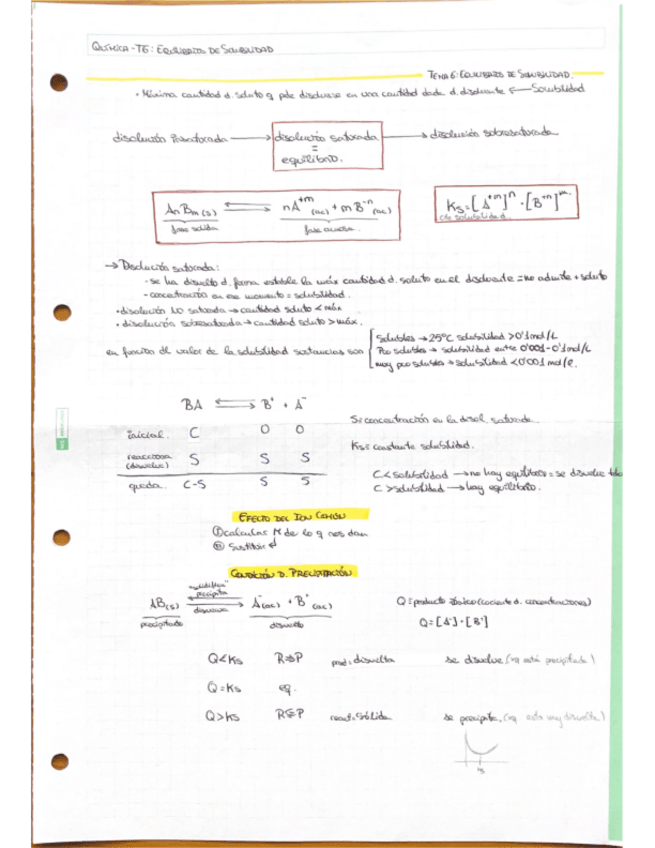 QUÍMICA - T6: EQUILIBRIOS DE SOLUBILIDAD
TEMA 6: EQUILIBRIOS DE SOLUBILIDAD.
• Máxima cantidad d. soluto q pde disolverse en una cantidad dada d. disolvente ← Solubilidad
disolución insaturada → disolución saturada → disolución sobresaturada
=
equilibrio.
AnBm (s) ⇌ nA+m (ac) + mB-n (ac)
Ks = [A+m]n · [B-n]m
fase sólida
fase acuosa.
cte solubilidad.
→ Disolución saturada:
- se ha disuelto d. forma estable la máx cantidad d. soluto en el disolvente = no admite + soluto
- concentración en ese momento = solubilidad.
• disolución NO saturada → cantidad soluto < máx
• disolución sobresaturada → cantidad soluto > máx.
en función del valor de la solubilidad sustancias son
Solubles → 25ºC solubilidad > 0'1 mol/L
Poco solubles → solubilidad entre 0'001 - 0'1 mol/L
muy poco solubles → solubilidad < 0'001 mol/l.
BA ⇌ B+ + A-
inicial. C 0 0
reacciona (disuelve) S S S
queda. C-S S S
S: concentración en la disol. saturada.
Ks: constante solubilidad.
C < solubilidad → no hay equilibrio = se disuelve todo
C > solubilidad → hay equilibrio.
EFECTO DEL ION COMÚN
① calcular M de lo q nos dan
② Sustituir
CONDICIÓN D. PRECIPITACIÓN
precipita
AB(s) ⇌ A-(ac) + B+(ac)
disuelve
precipitado
disuelto
Q = producto iónico (cociente d. concentraciones)
Q = [A-] · [B+]
Q < Ks R ⇒ P prod: disuelta se disuelve (no está precipitada)
Q = Ks eq.
Q > Ks R ⇐ P react: sólida se precipita, (no está muy disuelta)